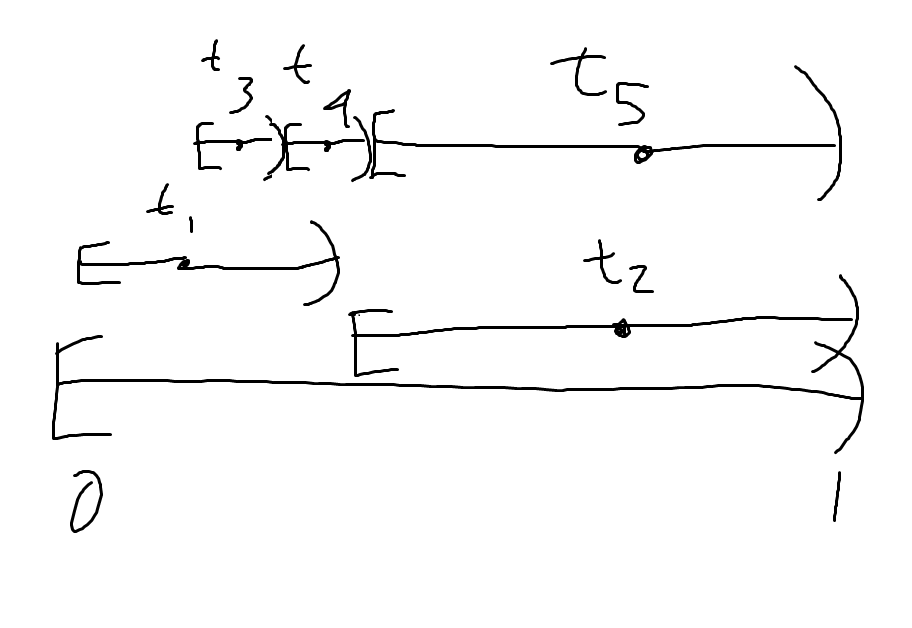 t3 t4 t5
t1
t2
0 1